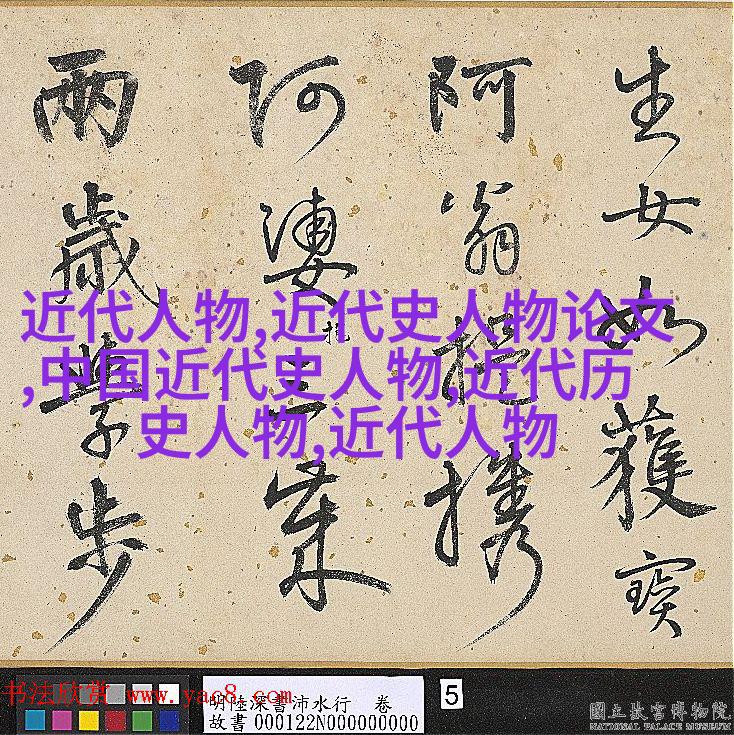 生女如獲寶
阿翁提携
阿婆
兩歲學步
近代人物,近代史人物论文
,中国近代史人物,近代历
史人物,近代人物
书法欣赏 www.yac8.com
明陸深書沛水行 卷
故書 000122N000000000
5
國立故宮博物院
NATIONAL PALACE MUSEUM